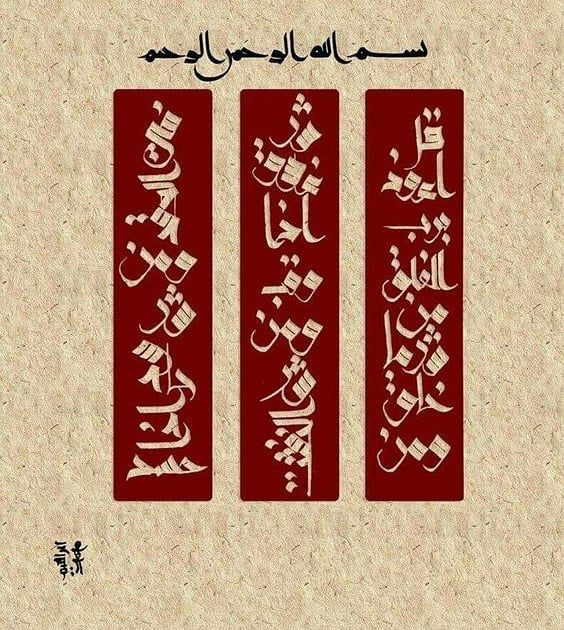 بسم الله الرحمن الرحيم
قل اعوذ برب الفلق من شر ما خلق ومن
شر غاسق اذا وقب ومن شر النفثت
في العقد ومن شر حاسد اذا حسد